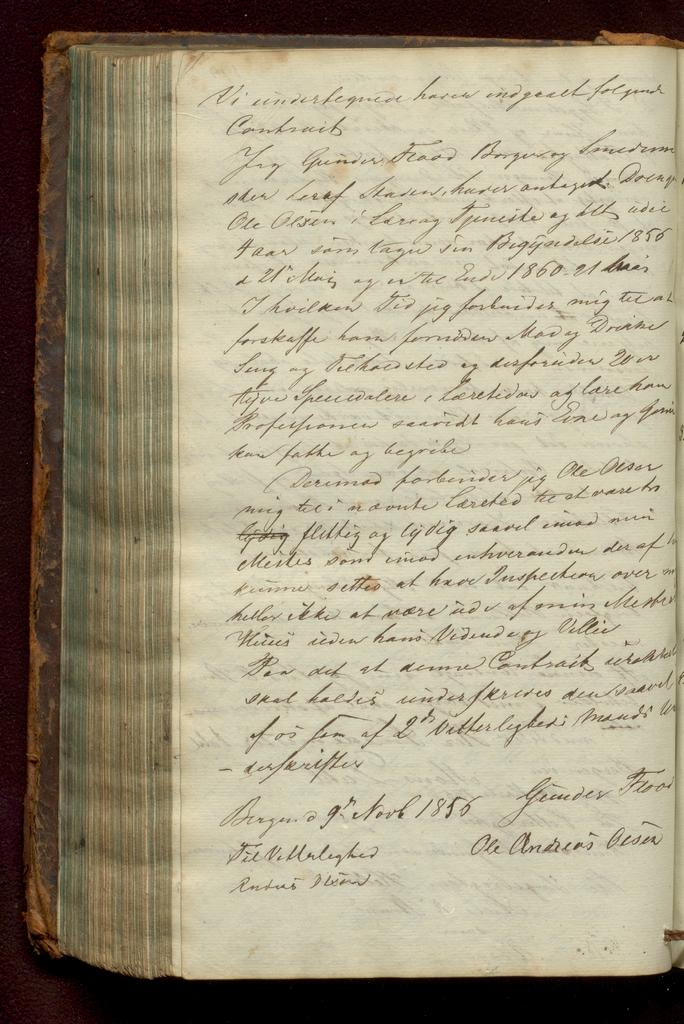 Vi undertegnede haver indgaaet følgende
Contract
Jeg Gunder Flood Borger og Smedeme
ster heraf Staden, haver antaget Dreng
Ole Olsen i Lære og Tjeneste og det udi
4 aar som tager sin Begyndelse 1856
d 21de Mai og er til Ende 1860-21 Mai
I hvilken Tid jeg forbinder mig til at
forskaffe ham fornøden Mad og Drikke
Seng og Tilholdsted og desforuden 20 er
tyve Speciedalere i Læretiden at lære ham
Professionen saavidt hans Evne og
kan fatte og begribe
Derimod forbinder jeg Ole Olsen
mig til i nævnte Læretid at være
lydig flittig og lydig saavel imod min
Mester som imod enhver anden der af
kunne settes at have Inspection over
heller ikke at være ude af min Mesters
Huus uden hans Vidende og Villie
Paa det at denne Contract
skal holdes underskrives den saavel
af os som af 2de Vitterligheds Mænds Un
- derskrifter
Bergen d 9de Novb 1856 Gunder Flood
Til Vitterlighed Ole Andreas Olsen
Andreas Olsen